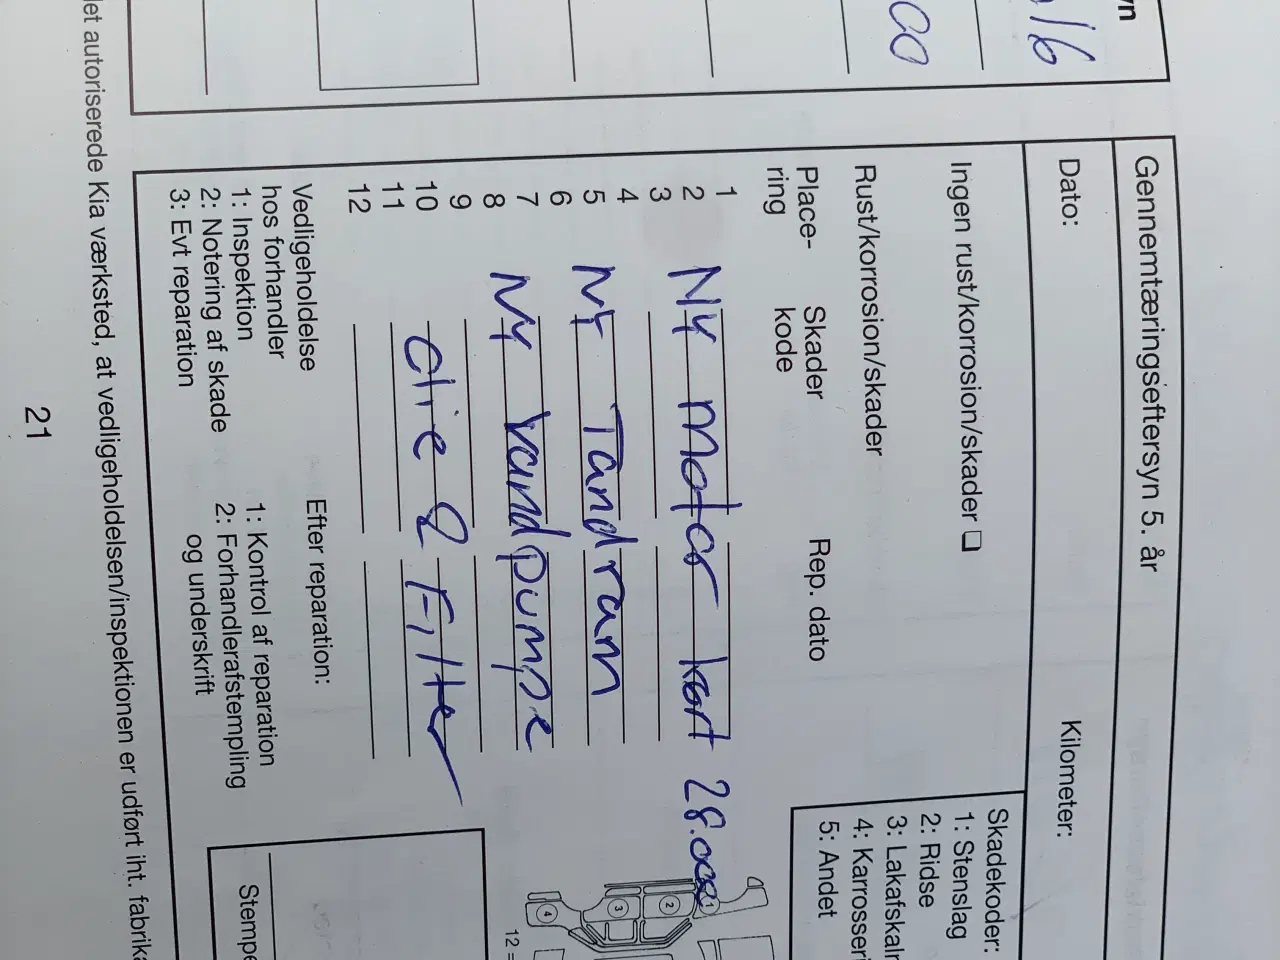 yn
16
00
Gennemtæringseftersyn 5. år
Dato: Kilometer:
Ingen rust/korrosion/skader ❏
Rust/korrosion/skader
Place-
ring
Skader
kode
Rep. dato
1
2 Ny motor kørt 28.000
3
4
5 Ny Tandram
6
7 Ny Vandpumpe
8
9
10 Olie & Filter
11
12
Skadekoder:
1: Stenslag
2: Ridse
3: Lakafskaln
4: Karrosseri
5: Andet
1
2
3
4
12 =
Vedligeholdelse
hos forhandler
1: Inspektion
2: Notering af skade
3: Evt reparation
Efter reparation:
1: Kontrol af reparation
2: Forhandlerafstempling
og underskrift
Stempe
let autoriserede Kia værksted, at vedligeholdelsen/inspektionen er udført iht. fabrika
21